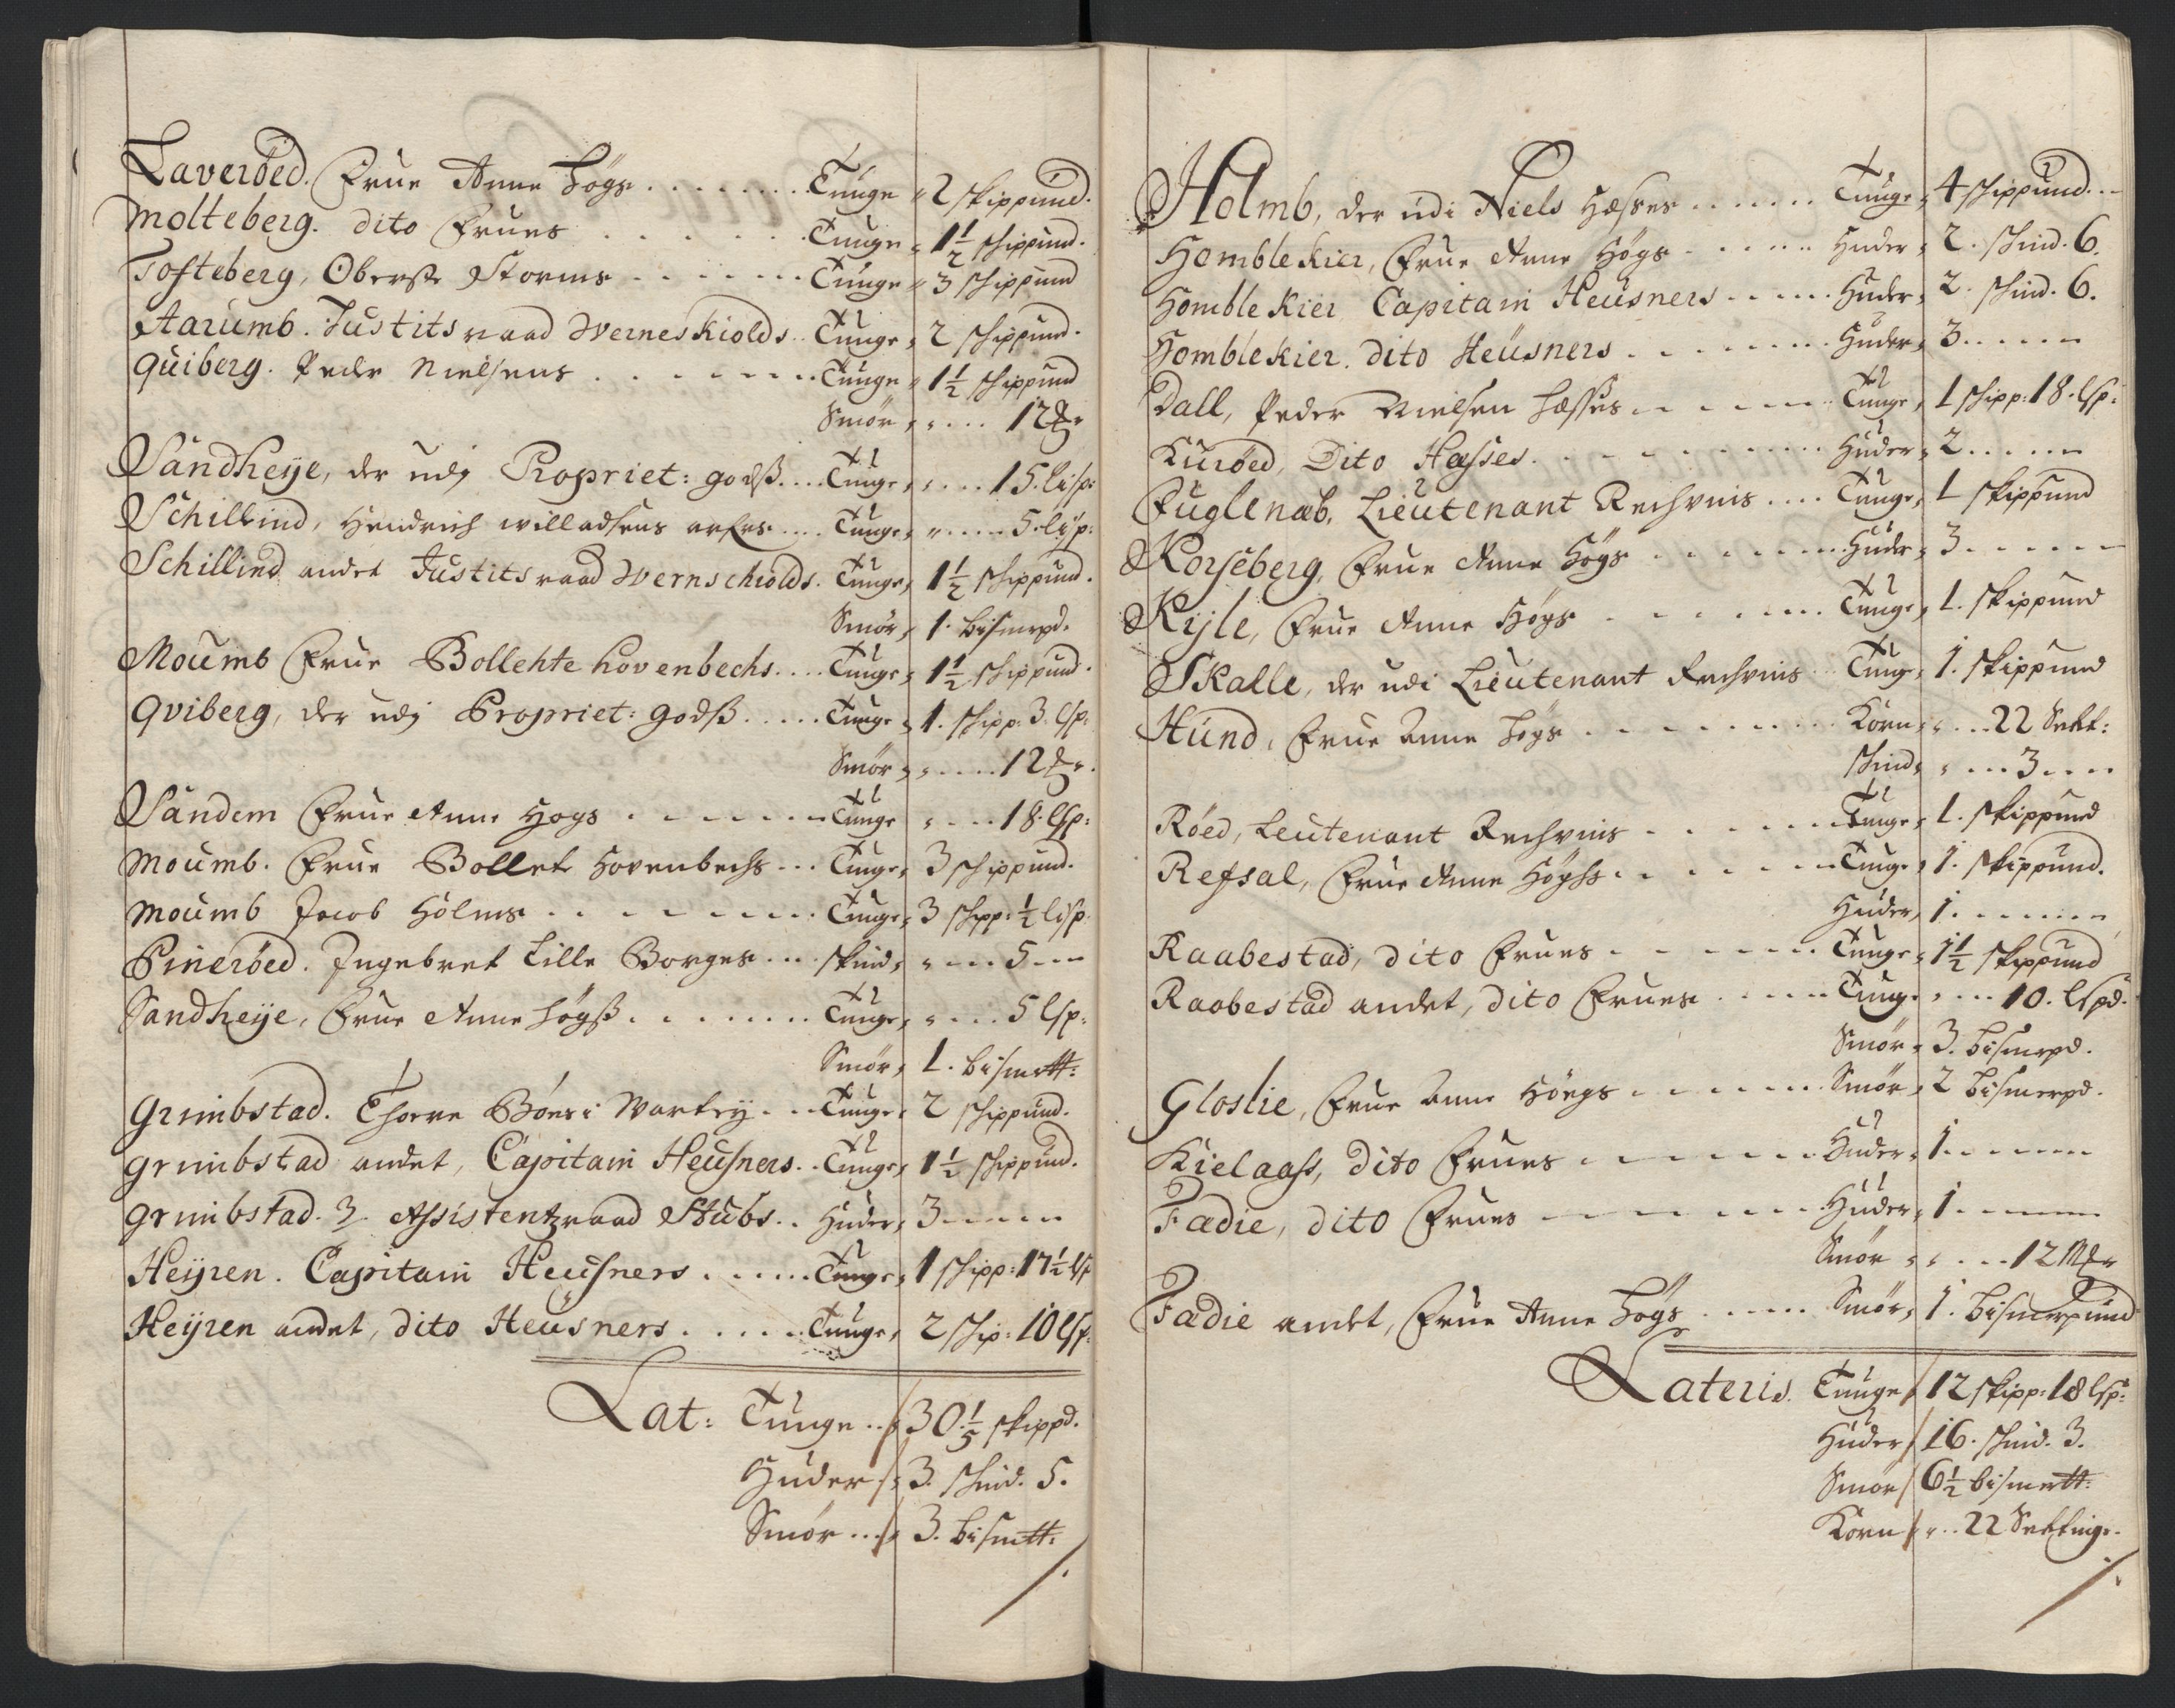 Laveröed. Frue Anne Högs ....... Tunge " 2 skippund.
Molteberg. dito Frues ...... Tunge " 1½ schippund.
Tofteberg, Oberste Storms ...... Tunge " 3 schippund
Aarumb. Justits raad Werneskiolds .. Tunge " 2 schippund.
Quiberg. Peder Nielsens ....... Tunge " 1½ schippund
Smör " " .... 12
Sandheije, der udj Propriet: godß .... Tunge " " .... 15. lisp:
Schillind, Hendrich willadsens arfves .... Tunge " " ..... 5. lisp:
Schillind andet Justits raad Wernschiolds. Tunge " 1½ schippund.
Smör " 1. bismerpd.
Moumb Frue Bollehte hovenbechs .... Tunge " 1½ schippund.
Qviberg, der udj Propriet: godß ..... Tunge " 1. schipp: 3. lsp:
Smör " " ..... 12
Sandem Frue Anne Hogs ....... Tunge " .... 18. lsp:
Moumb. Frue Bollet Hovenbechs ... Tunge " 3 schippund.
Moumb Jacob Hölms ........ Tunge " 3 schipp: ½ lisp
Pineröed. Ingebret Lille Borges ... skind " " ... 5 ...
Sandheije, Frue Anne högß ........ Tunge " " .... 5 lsp:
Smör " 1. bismett:
Grimbstad. Thore Böns i Warteig ... Tunge " 2 schippund.
Grimbstad andet, Capitain Heusners .. Tunge " 1½ schippund.
Grimbstad. 3. Assistentzraad Stubs .. Huder " 3 .....
Heijren. Capitain Heusners ...... Tunge " 1 schipp: 17½ lsp
Heijren andet, dito Heusners ...... Tunge " 2 schip: 10 lsp:
Lat: Tunge .. 30 1/5 skippd.
Huder " 3. schind. 5.
Smör ... 3. bismtt:
Holmb, der udi Niels Hasses ....... Tunge " 4 schippund...
Homblekier, Frue Anne Högs ...... Huder " 2. schind. 6.
Homblekier Capitain Heusners ..... Huder " 2. schind. 6.
Homblekier. dito Heusners ........ Huder " 3 ......
Dall, Peder Nielsen hasses ...... Tunge " 1 schipp: 18. lsp:
Kuröed, Dito Hasses ......... Huder " 2 .....
Fuglenæb, Lieutenant Rechvnis .... Tunge " 1 skippund
Korseberg, Frue Anne Högs ....... Huder " 3 ......
Kijle, Frue Anne Högs ....... Tunge " 1. skippund
Skalle, der udi Lieutenant Rechvnis ... Tunge " 1. skippund
Hund, Frue Anne högs ........ Korn " " ... 22 Sett:
skind " " ... 3 ....
Röed, Leutenant Rechvnis ....... Tunge " 1. skippund
Refsal, Frue Anne Höghs ....... Tunge " 1. skippund.
Huder " 1 .......
Raabestad, dito Frues ....... Tunge " 1½ skippund
Raabestad andet, dito Frues ..... Tunge " ... 10. lspd.
Smör " 3. bismerpd.
Gloslie, Frue Anne Högs ...... Smör " 2 bismerpd.
Kielaass, dito Frues ....... Huder " 1 ......
Fadie, dito Frues ....... Huder " 1 ......
Smör " " ... 12 Mkr
Fadie andet, Frue Anne högs ..... Smör " 1. bismerpund
Lateris. Tunge 12 skipp: 18 lsp:
Huder 16. schind. 3.
Smör 6½ bismertt:
Korn " .. 22 Settinge.